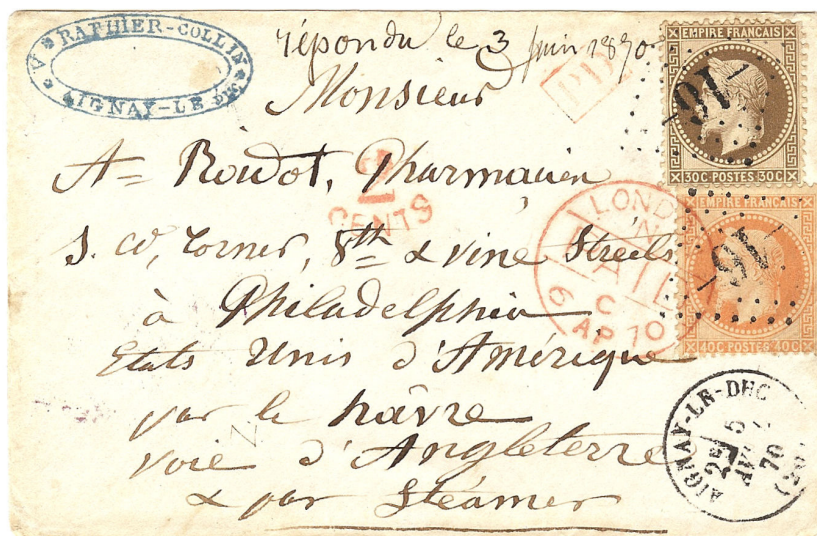 A * RAPHIER-COLLIN *
AIGNAY-LE
répondu le 3 juin 1870
PD
EMPIRE FRANÇAIS
16
30C POSTES 30C
Monsieur
A= Roudot, Pharmacien
2
CENTS
LONDON
PAID
C
6 AP 70
EMPIRE FRANÇAIS
16
40C POSTES 40C
S. W, Corner, 8th & vine Streets
à Philadelphia
Etats Unis d'Amérique
par le hâvre
voie d'Angleterre
& par Steamer
AIGNAY-LE-DUC
2E
5
70